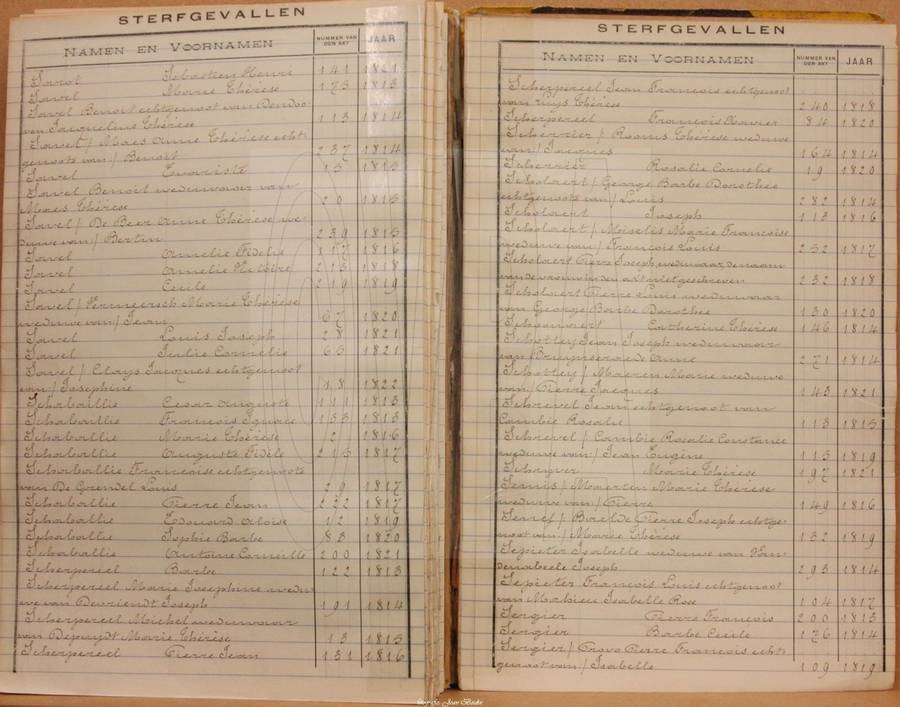 STERFGEVALLEN
NAMEN EN VOORNAMEN NUMMER VAN DEN AKT JAAR
Savel Sebastien Henri 141 1821
Savel Marie Thérèse 175 1813
Savel Benoit echtgenoot van
van Jacqueline Thérèse 113 1814
Savel / Maes Anne Thérèse echt-
genoote van / Benoit 237 1814
Savel Evariste 15 1815
Savel Benoit weduwaar van
Maes Thérèse 20 1815
Savel / De Beer Anne Thérèse we-
duwe van / Bertin 239 1815
Savel Amelie Fidelie 117 1816
Savel Amelie Victoire 215 1818
Savel Cecile 219 1819
Savel / Vermeersch Marie Thérèse
weduwe van / Jean 67 1820
Savel Louis Joseph 28 1821
Savel Julie Cornelie 65 1821
Savel / Clays Jacques echtgenoot
van / Josephine 18 1822
Schabaillie Cesar Auguste 111 1813
Schaballie François Ignace 133 1813
Schaballie Marie Thérèse 2 1816
Schaballie Auguste Fidèle 215 1817
Schaballie Francoise echtgenoote
van De Grendel Louis 29 1817
Schaballie Pierre Jean 222 1817
Schaballie Edouard Aloise 12 1819
Schaballie Sophie Barbe 83 1820
Schaballie Antoine Corneille 200 1821
Scherpereel Barbe 122 1813
Scherpereel Marie Josephine wedu-
we van Devriendt Joseph 191 1814
Scherpereel Michel weduwaar
van Depuydt Marie Thérèse 13 1815
Scherpereel Pierre Jean 131 1816
STERFGEVALLEN
NAMEN EN VOORNAMEN NUMMER VAN DEN AKT JAAR
Scherpereel Jean Francois echtgenoot
van Ruys Thérèse 240 1818
Scherpereel François Xavier 84 1820
Scherrier / Rooms Thérèse weduwe
van / Jacques 164 1814
Scherrier Rosalie Cornelie 19 1820
Scholaert / George Barbe Dorothée
echtgenoote van / Louis 282 1814
Scholaert Joseph 113 1816
Scholaert / Meiselis Marie Francoise
weduwe van / François Louis 252 1817
Scholaert Pierre Joseph, weduwaar de naam
van de vrouw in den akt niet geschreven 232 1818
Scholaert Pierre Louis weduwaar
van George Barbe Dorothée 130 1820
Catherine Thérèse 146 1814
Schotley Jean Joseph weduwaar
van Bruynseraede Anne 271 1814
Schotley / Maeren Marie weduwe
van / Pierre Jacques 143 1821
Schrevel Jean echtgenoot van
Cambie Rosalie 113 1815
Schrevel / Cambie Rosalie Constance
weduwe van / Jean Eugène 115 1819
Schryver Marie Thérèse 197 1821
Maerten Marie Thérèse
weduwe van / Pierre 149 1816
Pierre Joseph echtge-
noot van / Marie Thérèse 132 1819
Sepieter Isabelle weduwe van Van-
denabeele Joseph 293 1814
Sepieter François Louis echtgenoot
van Mahieu Isabelle Rose 104 1817
Sergier Pierre François 200 1813
Sergier Barbe Cecile 176 1814
Sergier / Provo Pierre Francois echt-
genoot van / Isabelle 109 1819